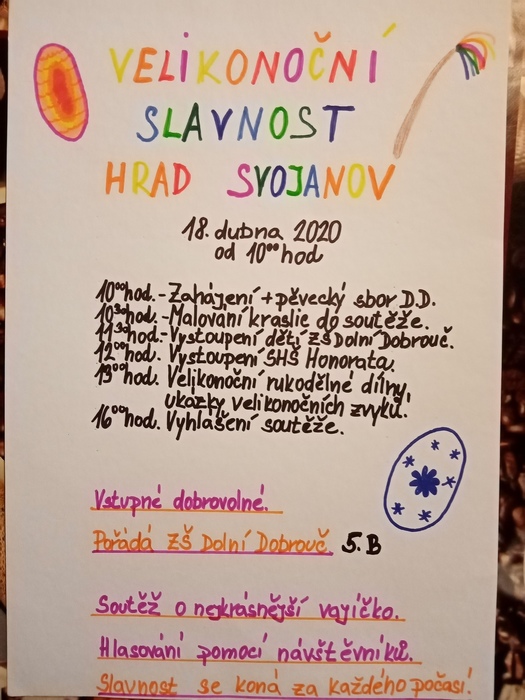 VELIKONOČNÍ
SLAVNOST
HRAD SVOJANOV
18. dubna 2020
od 10⁰⁰ hod
10⁰⁰hod.-Zahájení + pěvecký sbor D.D.
10³⁰hod.-Malování kraslic do soutěže.
11³⁰hod.-Vystoupení dětí ZŠ Dolní Dobrouč.
12⁰⁰hod. Vystoupení SHŠ Honorata.
13⁰⁰hod. Velikonoční rukodělné dílny,
ukázky velikonočních zvyků.
16⁰⁰hod. Vyhlášení soutěže.
Vstupné dobrovolné.
Pořádá ZŠ Dolní Dobrouč 5.B
Soutěž o nejkrásnější vajíčko.
Hlasování pomocí návštěvníků.
Slavnost se koná za každého počasí